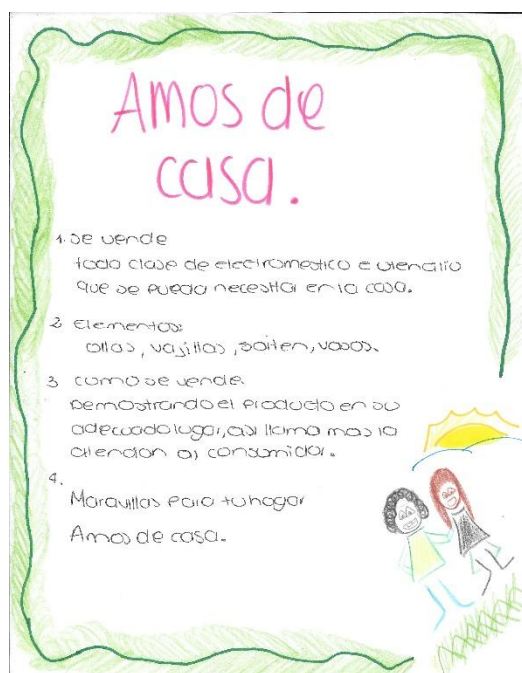 Amos de
casa.
1. se vende
toda clase de electromestico e utencilio
que se pueda necesitar en la casa.
2 Elementos:
ollas, vajillas, saiten, vasos.
3 como se vende.
Demostrando el producto en su
adecuado lugar, asi llama mas la
atencion al consumidor.
4.
Maravillas para tu hogar
Amos de casa.